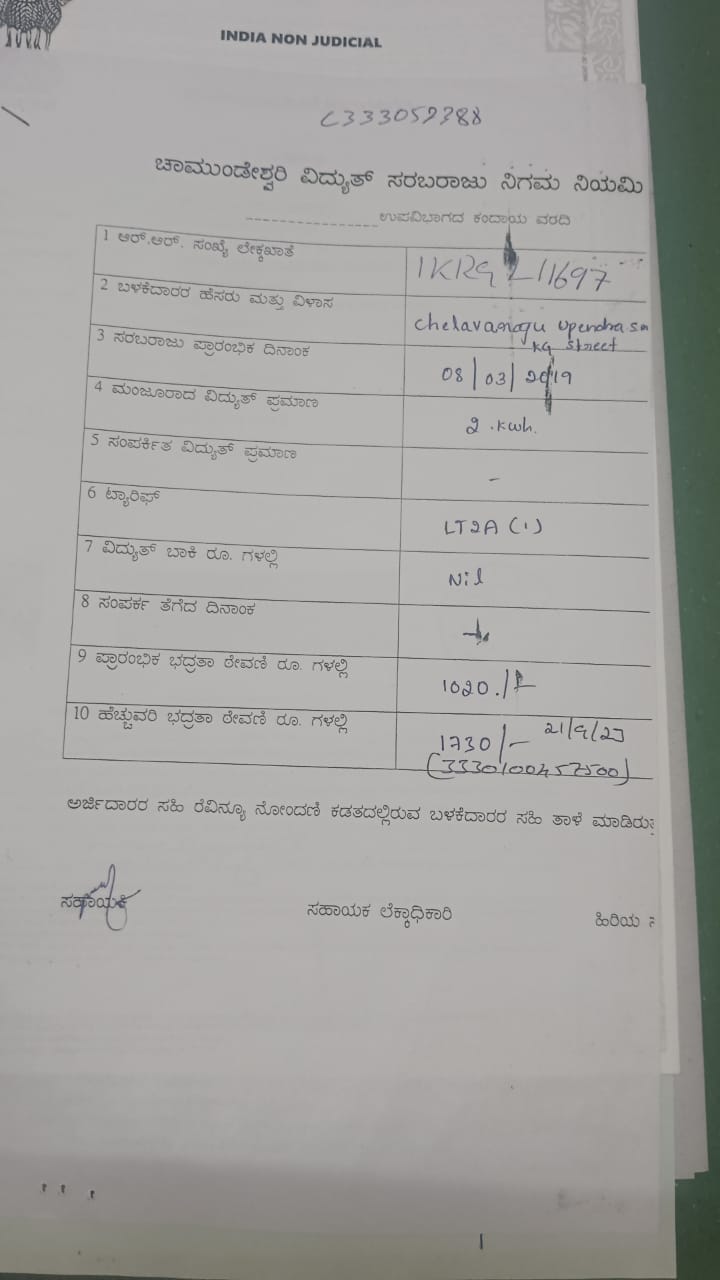 INDIA NON JUDICIAL
C333059388
ಚಾಮುಂಡೇಶ್ವರಿ ವಿದ್ಯುತ್ ಸರಬರಾಜು ನಿಗಮ ನಿಯಮಿ
----------------ಉಪವಿಭಾಗದ ಕಂದಾಯ ವರದಿ
1 ಆರ್.ಆರ್. ಸಂಖ್ಯೆ ಲೆಕ್ಕಖಾತೆ
11697
2 ಬಳಕೆದಾರರ ಹೆಸರು ಮತ್ತು ವಿಳಾಸ
Upendra
KG Street
3 ಸರಬರಾಜು ಪ್ರಾರಂಭಿಕ ದಿನಾಂಕ
08/03/2019
4 ಮಂಜೂರಾದ ವಿದ್ಯುತ್ ಪ್ರಮಾಣ
2 .kwh.
5 ಸಂಪರ್ಕಿತ ವಿದ್ಯುತ್ ಪ್ರಮಾಣ
-
6 ಟ್ಯಾರಿಫ್
LT2A (1)
7 ವಿದ್ಯುತ್ ಬಾಕಿ ರೂ. ಗಳಲ್ಲಿ
Nil
8 ಸಂಪರ್ಕ ತೆಗೆದ ದಿನಾಂಕ
9 ಪ್ರಾರಂಭಿಕ ಭದ್ರತಾ ಠೇವಣಿ ರೂ. ಗಳಲ್ಲಿ
1020./-
10 ಹೆಚ್ಚುವರಿ ಭದ್ರತಾ ಠೇವಣಿ ರೂ. ಗಳಲ್ಲಿ
1730/- 21/9/23
(3330100457500)
ಅರ್ಜಿದಾರರ ಸಹಿ ರೆವಿನ್ಯೂ ನೋಂದಣಿ ಕಡತದಲ್ಲಿರುವ ಬಳಕೆದಾರರ ಸಹಿ ತಾಳೆ ಮಾಡಿರುತ್
ಸಹಾಯಕ ಸಹಾಯಕ ಲೆಕ್ಕಾಧಿಕಾರಿ ಹಿರಿಯ ಸ